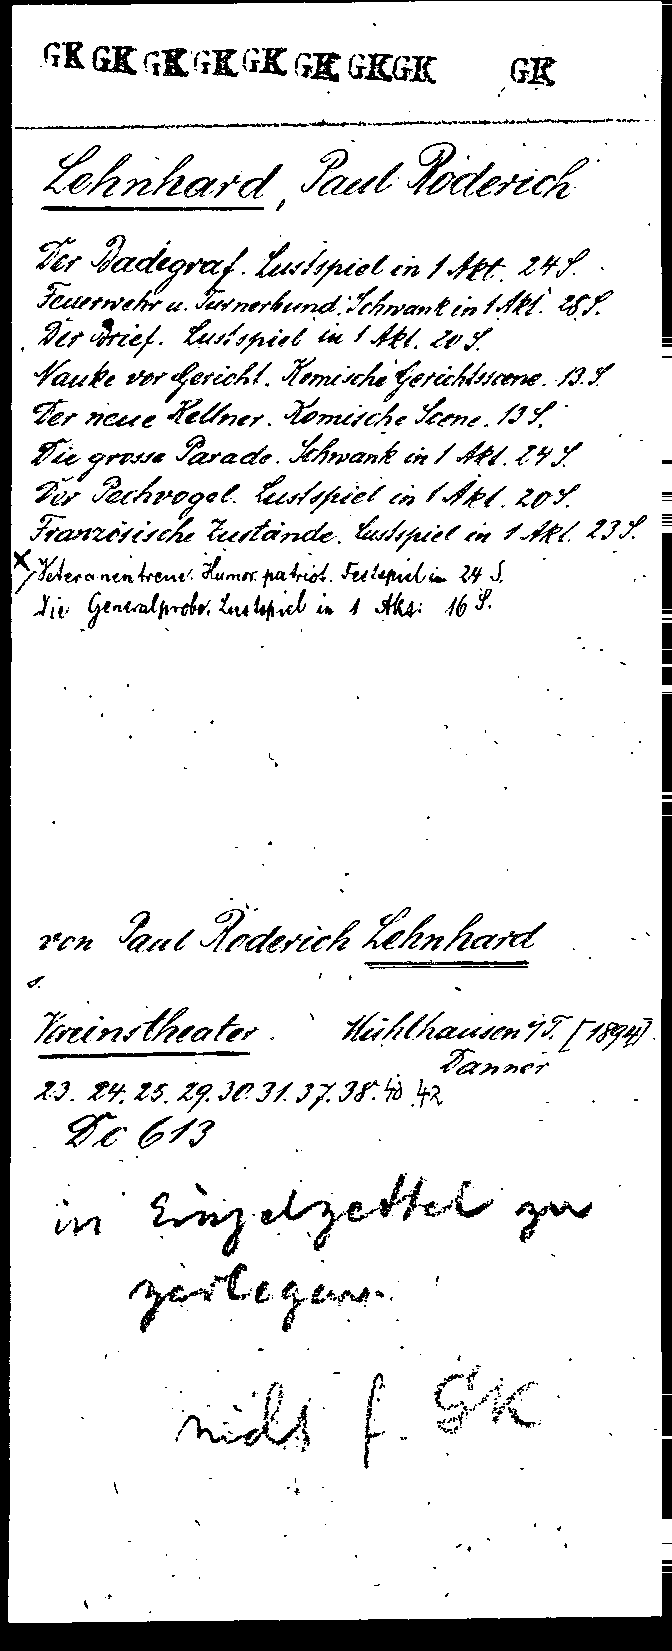 GK GK GK GK GK GK GK GK GK
Lehnhard, Paul Roderich
Der Badegraf. Lustspiel in 1 Akt. 24 S.
Feuerwehr u. Turnerbund. Schwank in 1 Akt. 28 S.
Der Brief. Lustspiel in 1 Akt. 20 S.
Nauke vor Gericht. Komische Gerichtsscene. 13 S.
Der neue Kellner. Komische Scene. 13 S.
Die grosse Parade. Schwank in 1 Akt. 24 S.
Der Pechvogel. Lustspiel in 1 Akt. 20 S.
Französische Zustände. Lustspiel in 1 Akt. 23 S.
x) Veteranentreue. Humor. patriot. Festspiel in 24 S.
Die Generalprobe. Lustspiel in 1 Akt: 16 S.
von Paul Roderich Lehnhard
s.
Vereinstheater. Mühlhausen i/T. [1894]
Danner
23. 24. 25. 29. 30. 31. 37. 38. 40 42
De 613
in Einzelzettel zu
zerlegen.
nicht f. GK